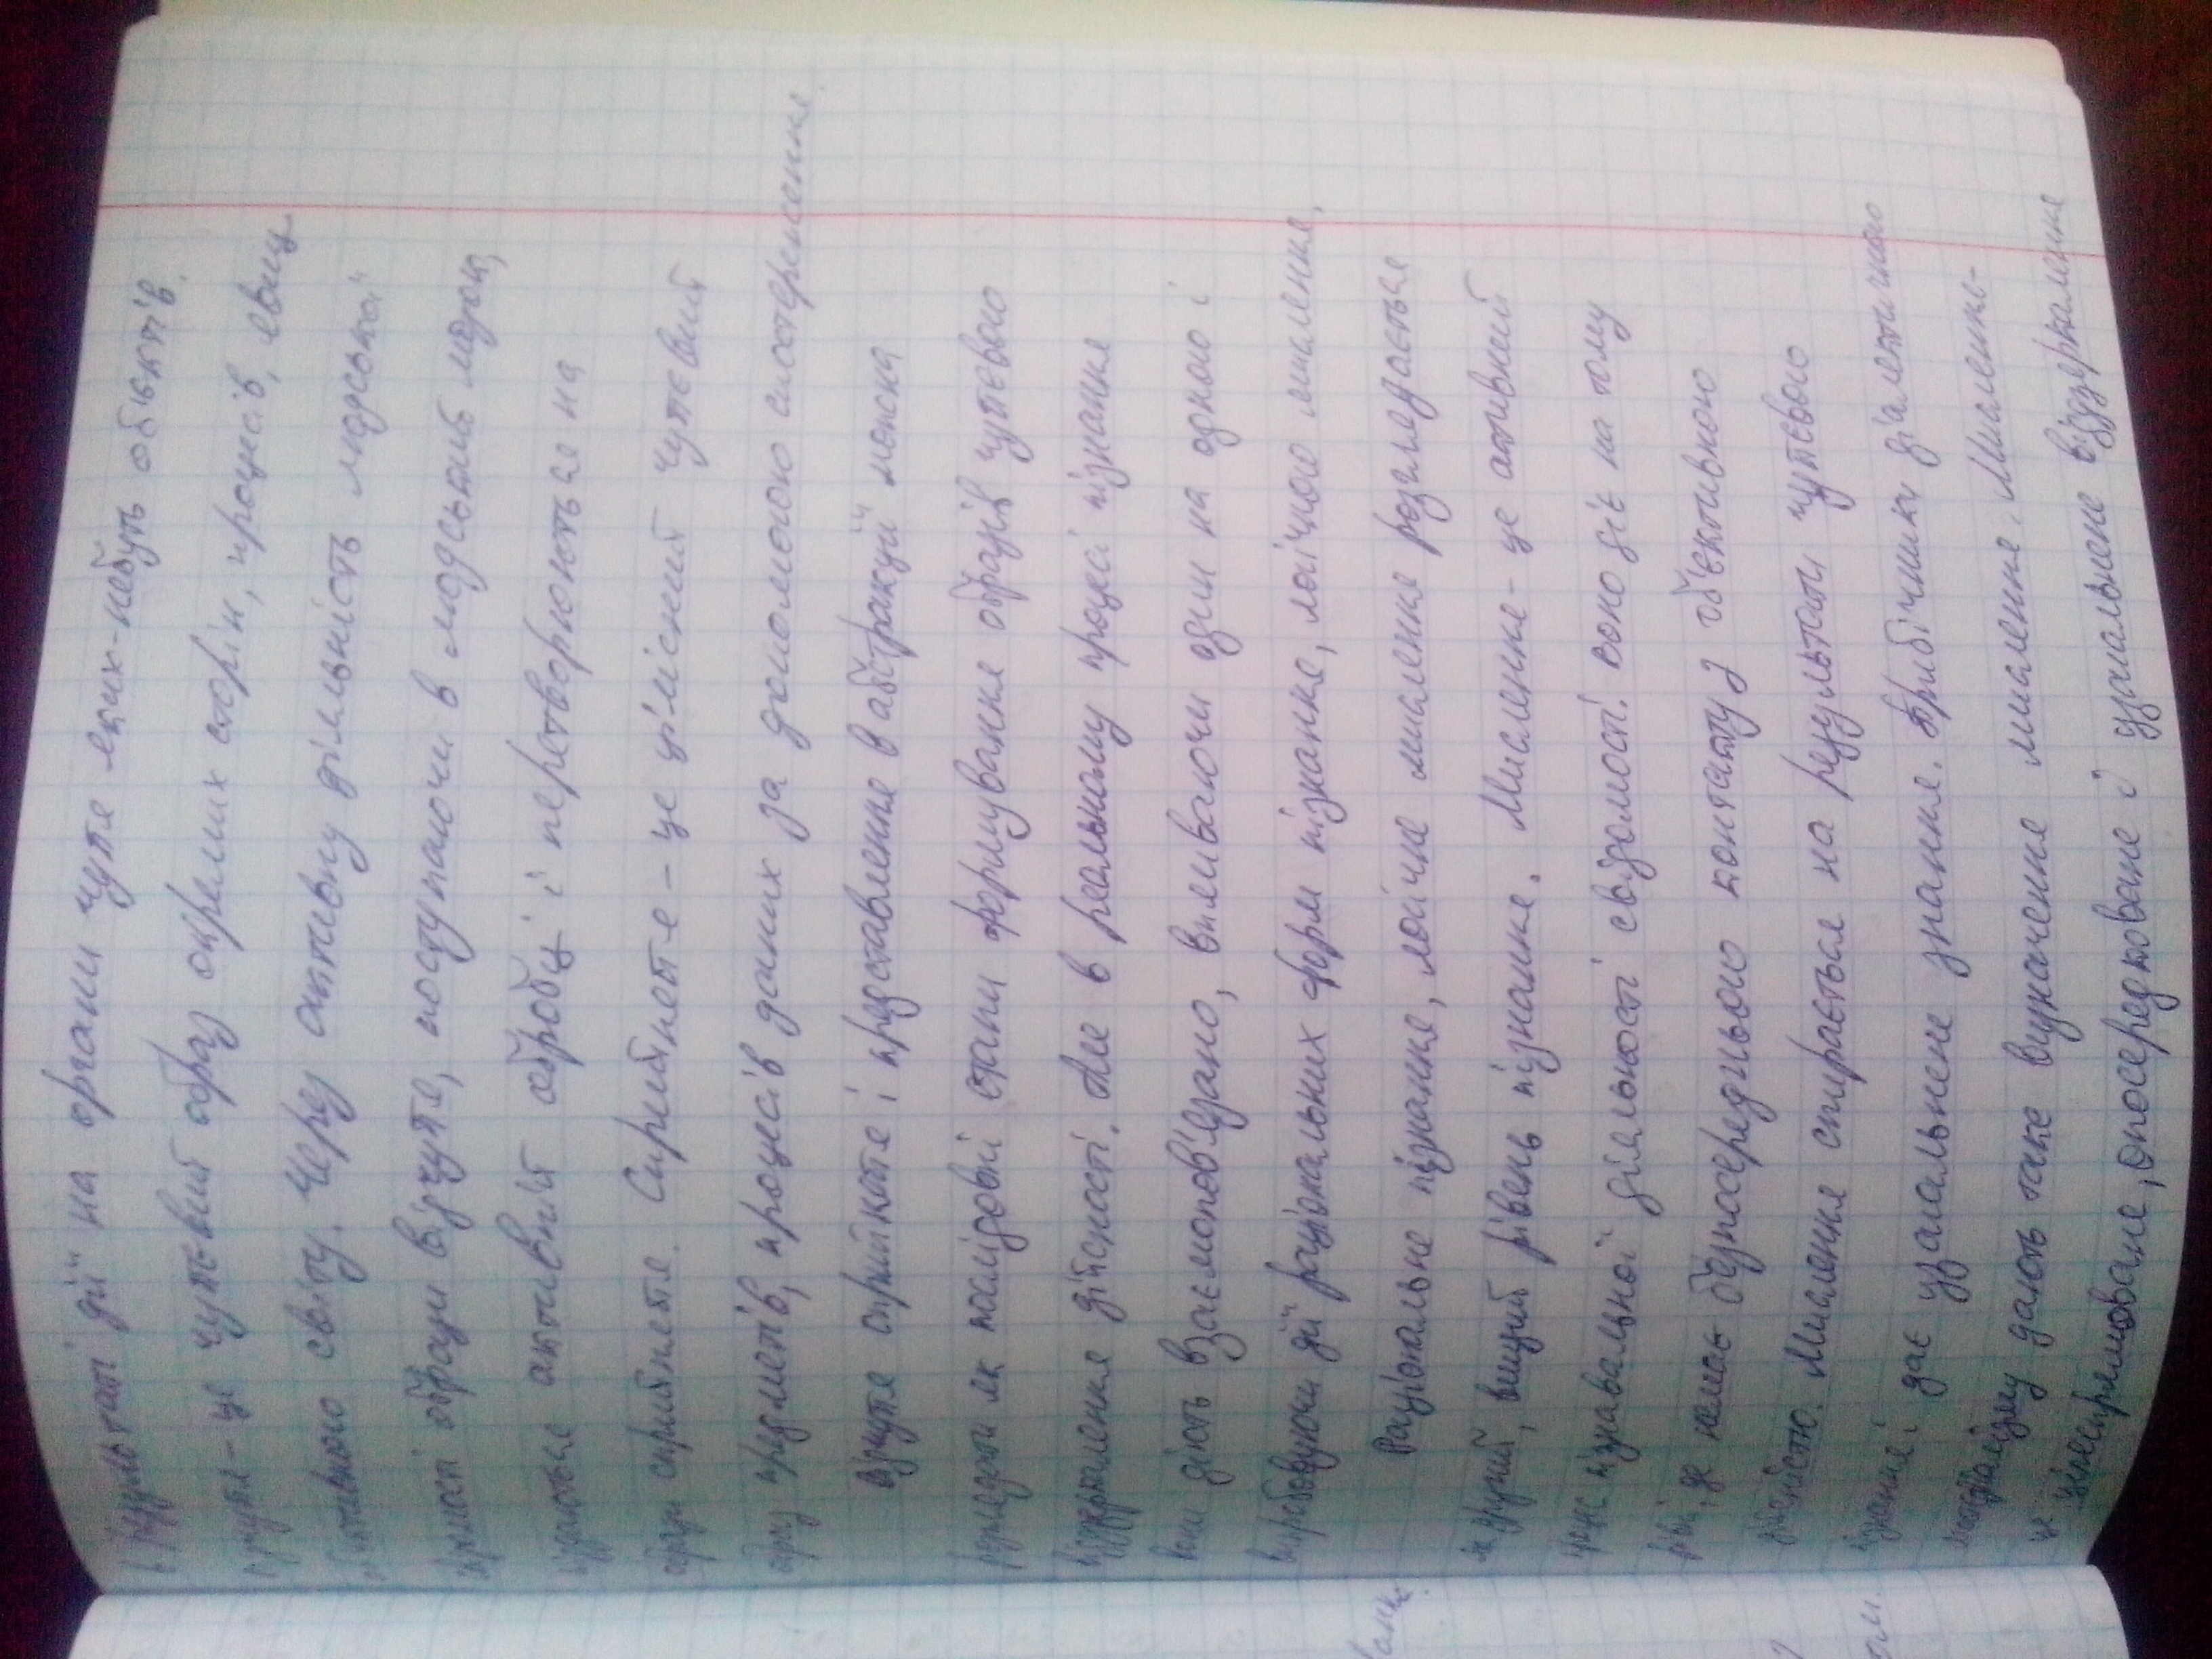 в результаті дії на органи чутя яких-небуть об'єктів.
відчутя - це чутєвий образ окремих сторін, процесів, явищ
об'єктивного світу. Через активну діяльність людської
образи відчутя, поступаючи в людський мозок,
піддаються активній обробці і перетворюються на
образи сприйняття. Сприйняття - це цілісний чутєвий
образ предметів, процесів даних за допомогою спостереження.
відчутя сприйняття і представлення в абстракції можна
розглядати як послідовні етапи формування образів чутєвого
віддзеркалення дійсності. Але в реальному процесі пізнання
вони діють взаємопов'язано, впливаючи один на одного і
випробовуючи дії раціональних форм пізнання, логічного мислення.
Раціональне пізнання, логічне мислення розглядається
як другий, вищий рівень пізнання. Мислення - це активний
процес пізнавальної діяльності свідомості. воно діє на тому
рівні, де немає безпосереднього контакту з об'єктивною
дійсністю. Мислення спирається на результати чутєвого
пізнання і дає узагальнене знання. Прибічники діалектичного
матеріалізму дають таке визначення мислення. Мислення-
це цілеспрямоване, опосередковане і узагальнене віддзеркалення